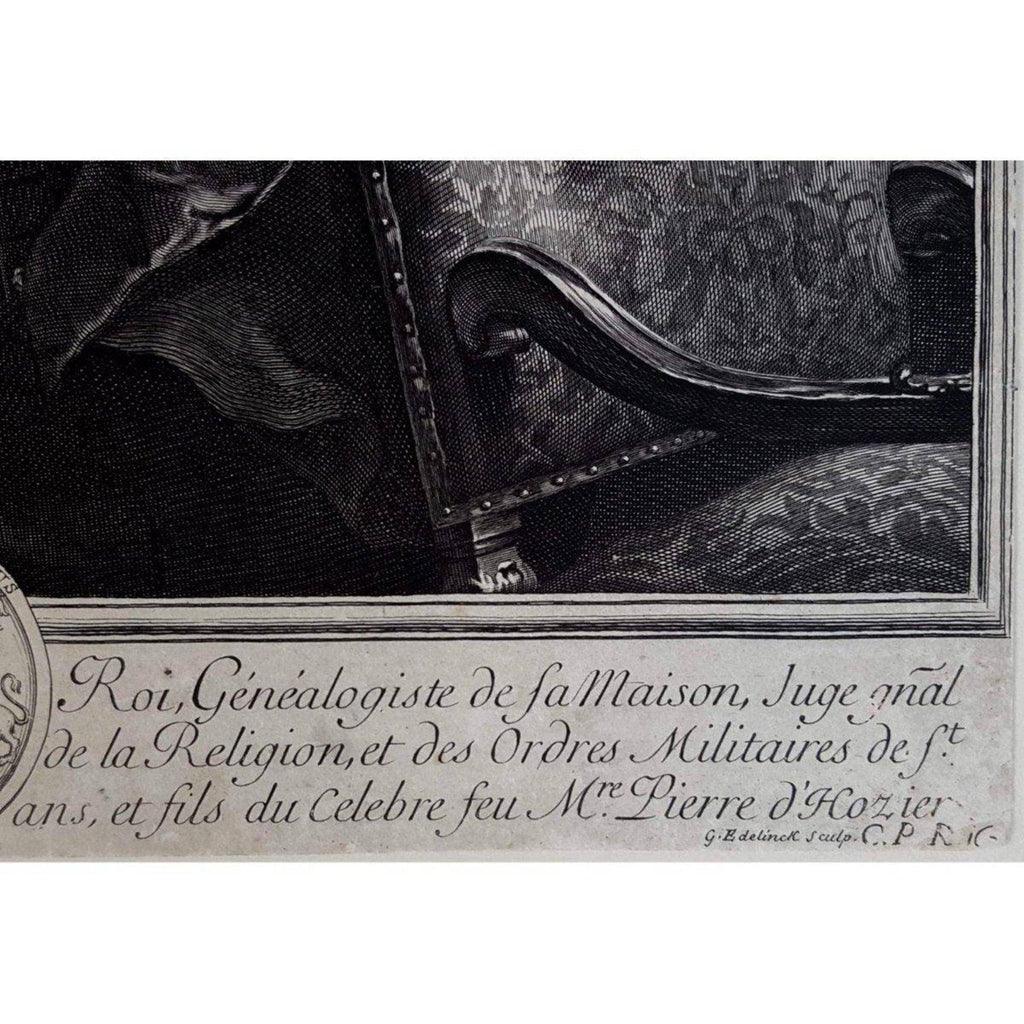 Roi, Généalogiste de sa Maison, Juge gnãl
de la Religion, et des Ordres Militaires de St.
ans, et fils du Celebre feu Mre. Pierre d'Hozier
G. Edelinck Sculp. C. P. R.